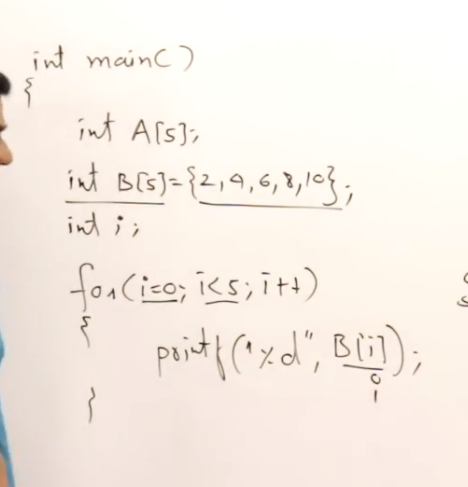 int main()
{
int A[5];
int B[5]={2,4,6,8,10};
int i;
for(i=0; i<5; i++)
{
printf("%d", B[i]);
0
1
}